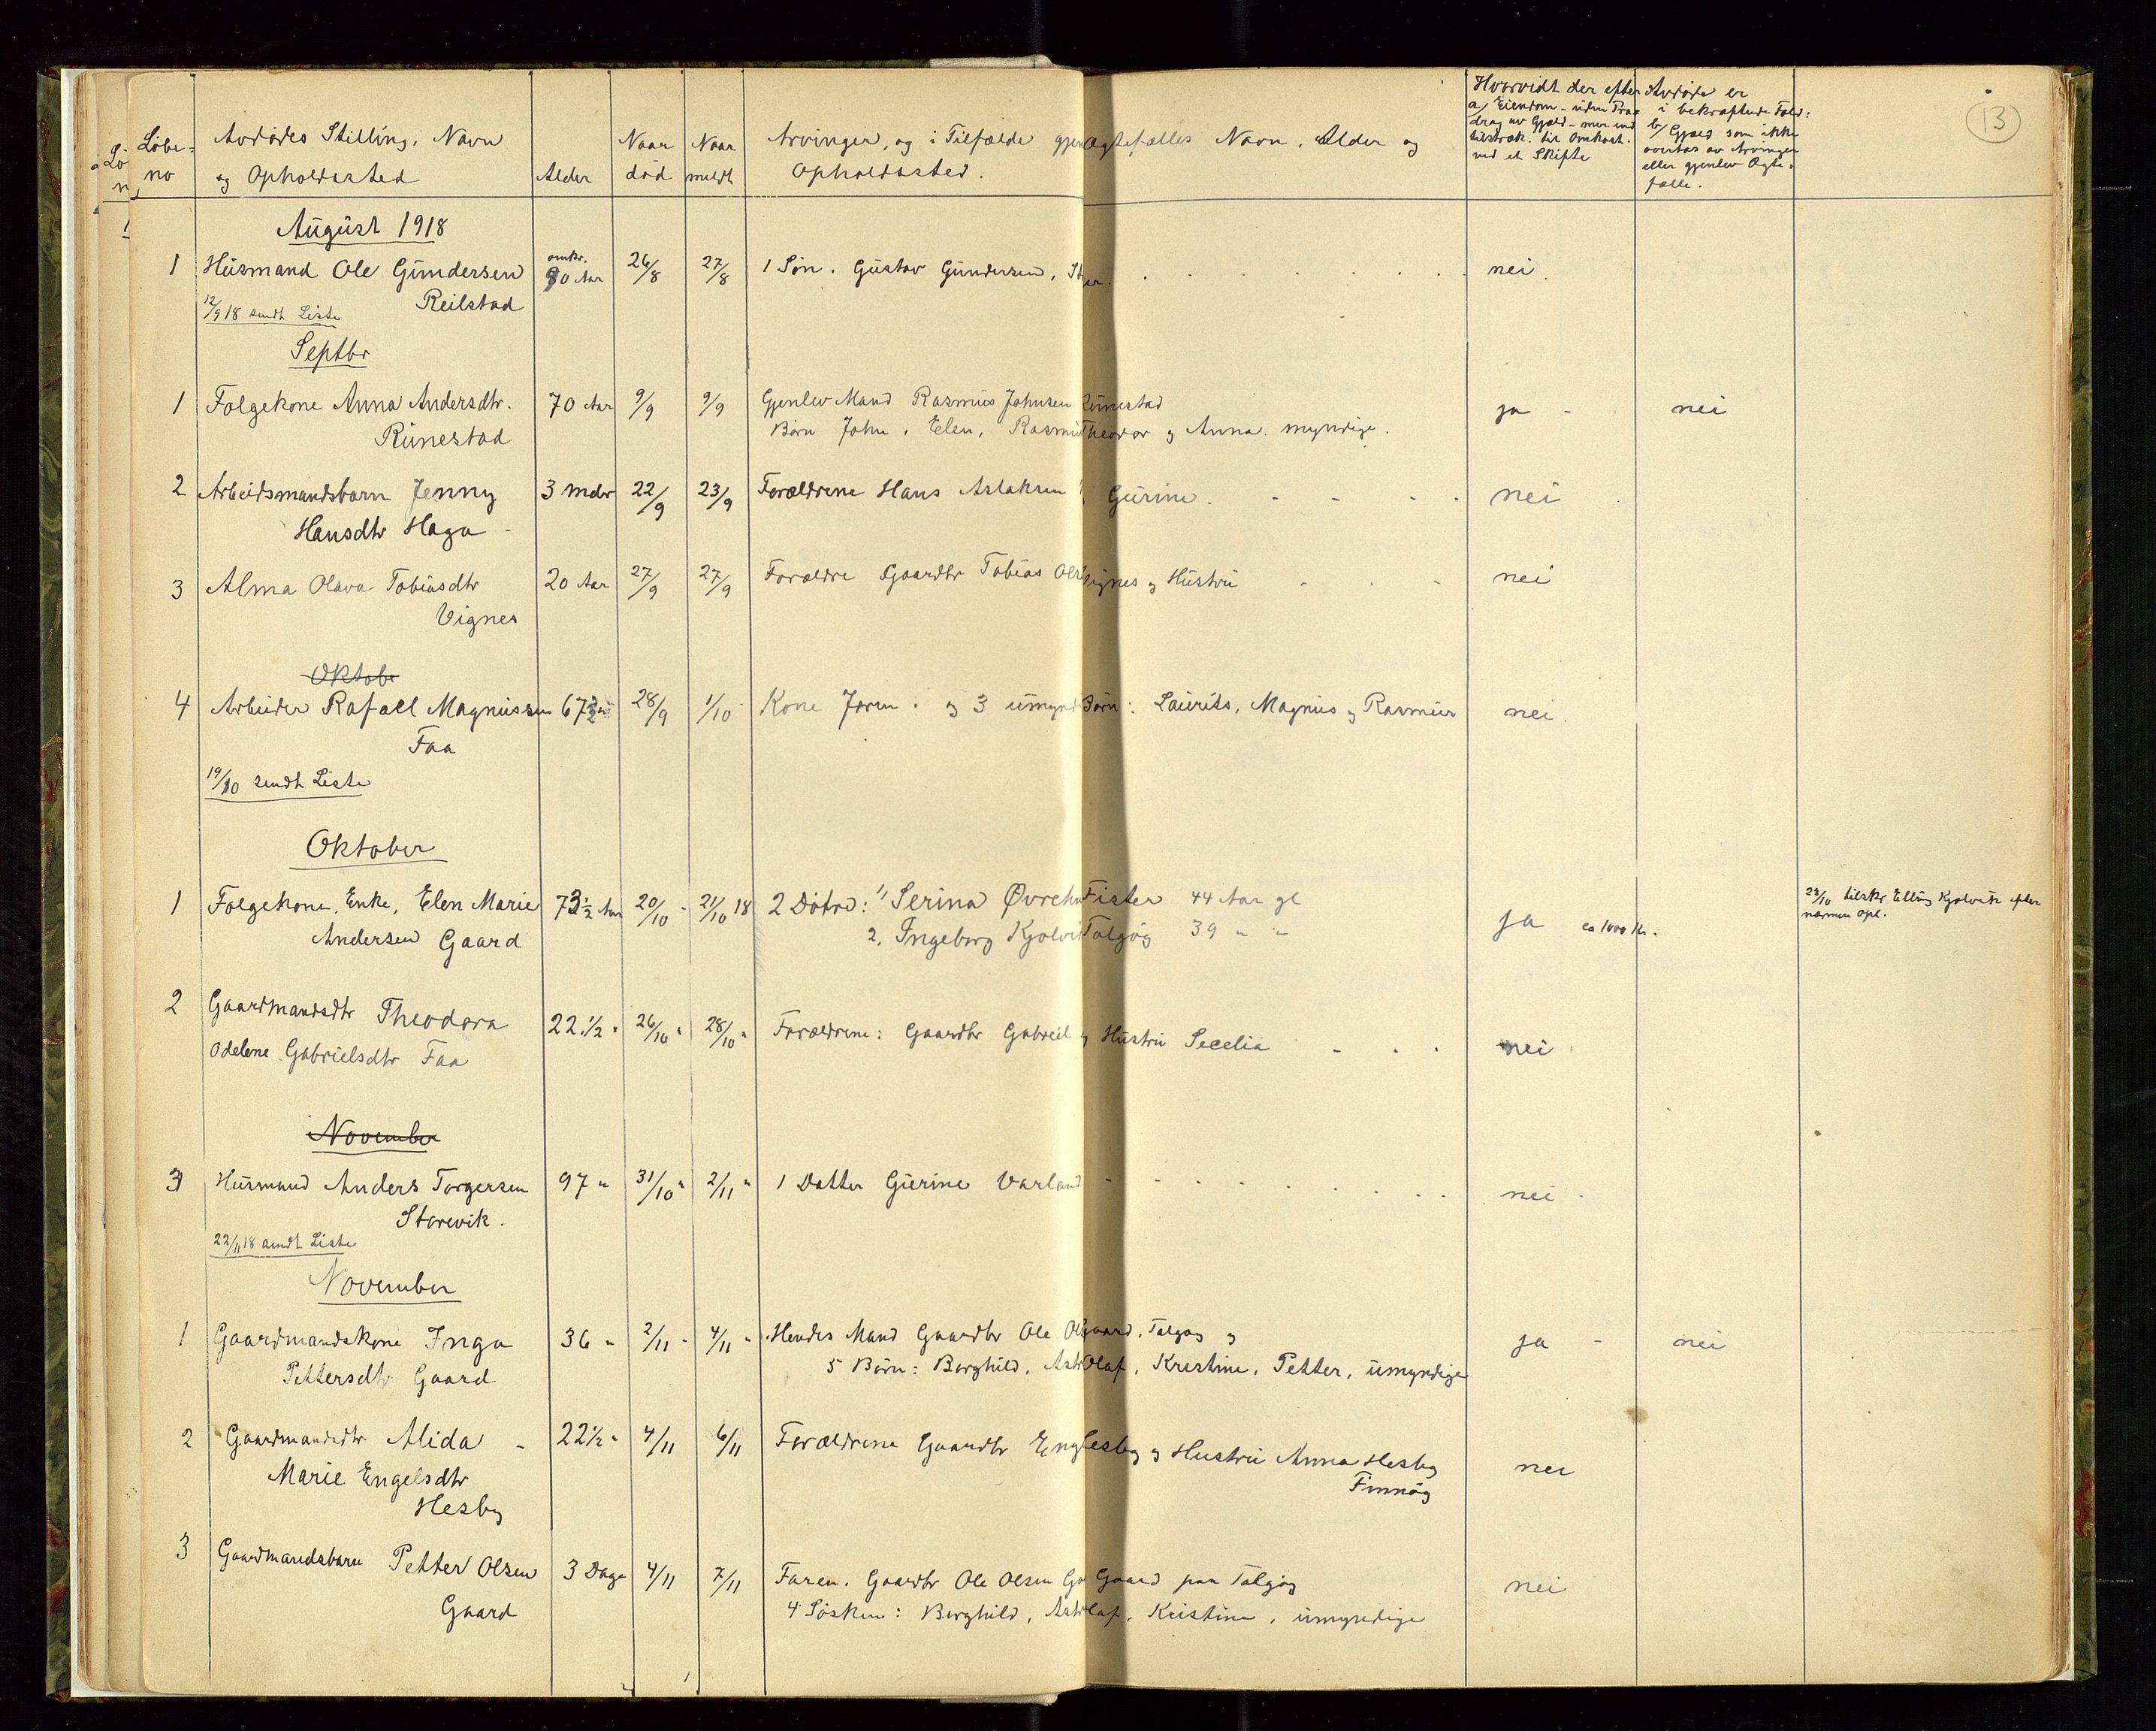 13
Løbe-
no
Avdødes Stilling, Navn
og Opholdssted
Alder
Naar
død
Naar
meldt
Arvinger, og i Tilfælde gjen Ægtefælles Navn, Alder og
Opholdssted.
Hvorvidt der efter Avdøde er
a/ Eiendom - uden Fra-
drag av Gjæld - mer end
tilstræk. til Omkost.
ved et Skifte
i bekræftende Fald:
b/ Gjæld som ikke
overtas av Arvinger
eller gjenlev Ægte-
fælle.
August 1918
1 Husmand Ole Gundersen omtr. 90 Aar 26/8 27/8 1 Søn. Gustav Gundersen, nei.
Reilstad
12/9 18 sendt Liste
Septbr
1 Følgekone Anna Andersdtr. 70 Aar 9/9 9/9 Gjenlev Mand Rasmus Johnsen Rünestad ja - nei
Rünestad Børn John, Elen, Rasmus Theodor og Anna. myndige.
2 Arbeidsmandsbarn Jenny 3 mdr 22/9 23/9 Forældrene Hans Aslaksen Gurine. nei
Hansdtr Haga
3 Alma Olava Tobiasdtr 20 Aar 27/9 27/9 Forældre Gaardbr Tobias Ols Vignes og Hustru nei
Vignes
Oktobr
4 Arbeider Rafael Magnussen 67½ 28/9 1/10 Kone Joren. og 3 umynd Børn: Laurits, Magnus og Rasmus nei.
Faa
19/10 sendt Liste
Oktober
1 Følgekone, Enke, Elen Marie 73½ Aar 20/10 21/10 18 2 Døtre: 1/ Serina Øvrehu Fister 44 Aar gl
Andersen Gaard 2. Ingeborg Kjølvi Talgøy 39 " " ja ca 1000 Kr.
23/10 tilskr Elling Kjølvik efter
nærmere opl.
2 Gaardmandsdtr Theodora 22.1/2 " 26/10 " 28/10 " Forældrene: Gaardbr Gabriel og Hustru Secelia nei
Odelene Gabrielsdtr Faa
November
3 Husmand Anders Torgersen 97 " 31/10 " 2/11 " 1 Datter Gurine Varland nei
Storevik.
22/11 18 sendt Liste
November
1 Gaardmandskone Inga 36 " 2/11 - 4/11 " Hendes Mand Gaardbr Ole Ol Gaard, Talgøy og ja - nei
Pettersdtr Gaard 5 Børn: Borghild, Ast Olaf, Kristine, Petter, umyndige
2 Gaardmandsdtr Alida - 22½ " 4/11 6/11 Forældrene Gaardbr Eng Hesby og Hustru Anna Hesby nei
Marie Engelsdtr Finnøy
Hesby
3 Gaardmandsbarn Petter Olsen 3 Dage 4/11 7/11 Faren. Gaardbr Ole Olsen Ga Gaard paa Talgøy nei
Gaard 4 Søsken: Borghild, Ast Olaf, Kristine, umyndige